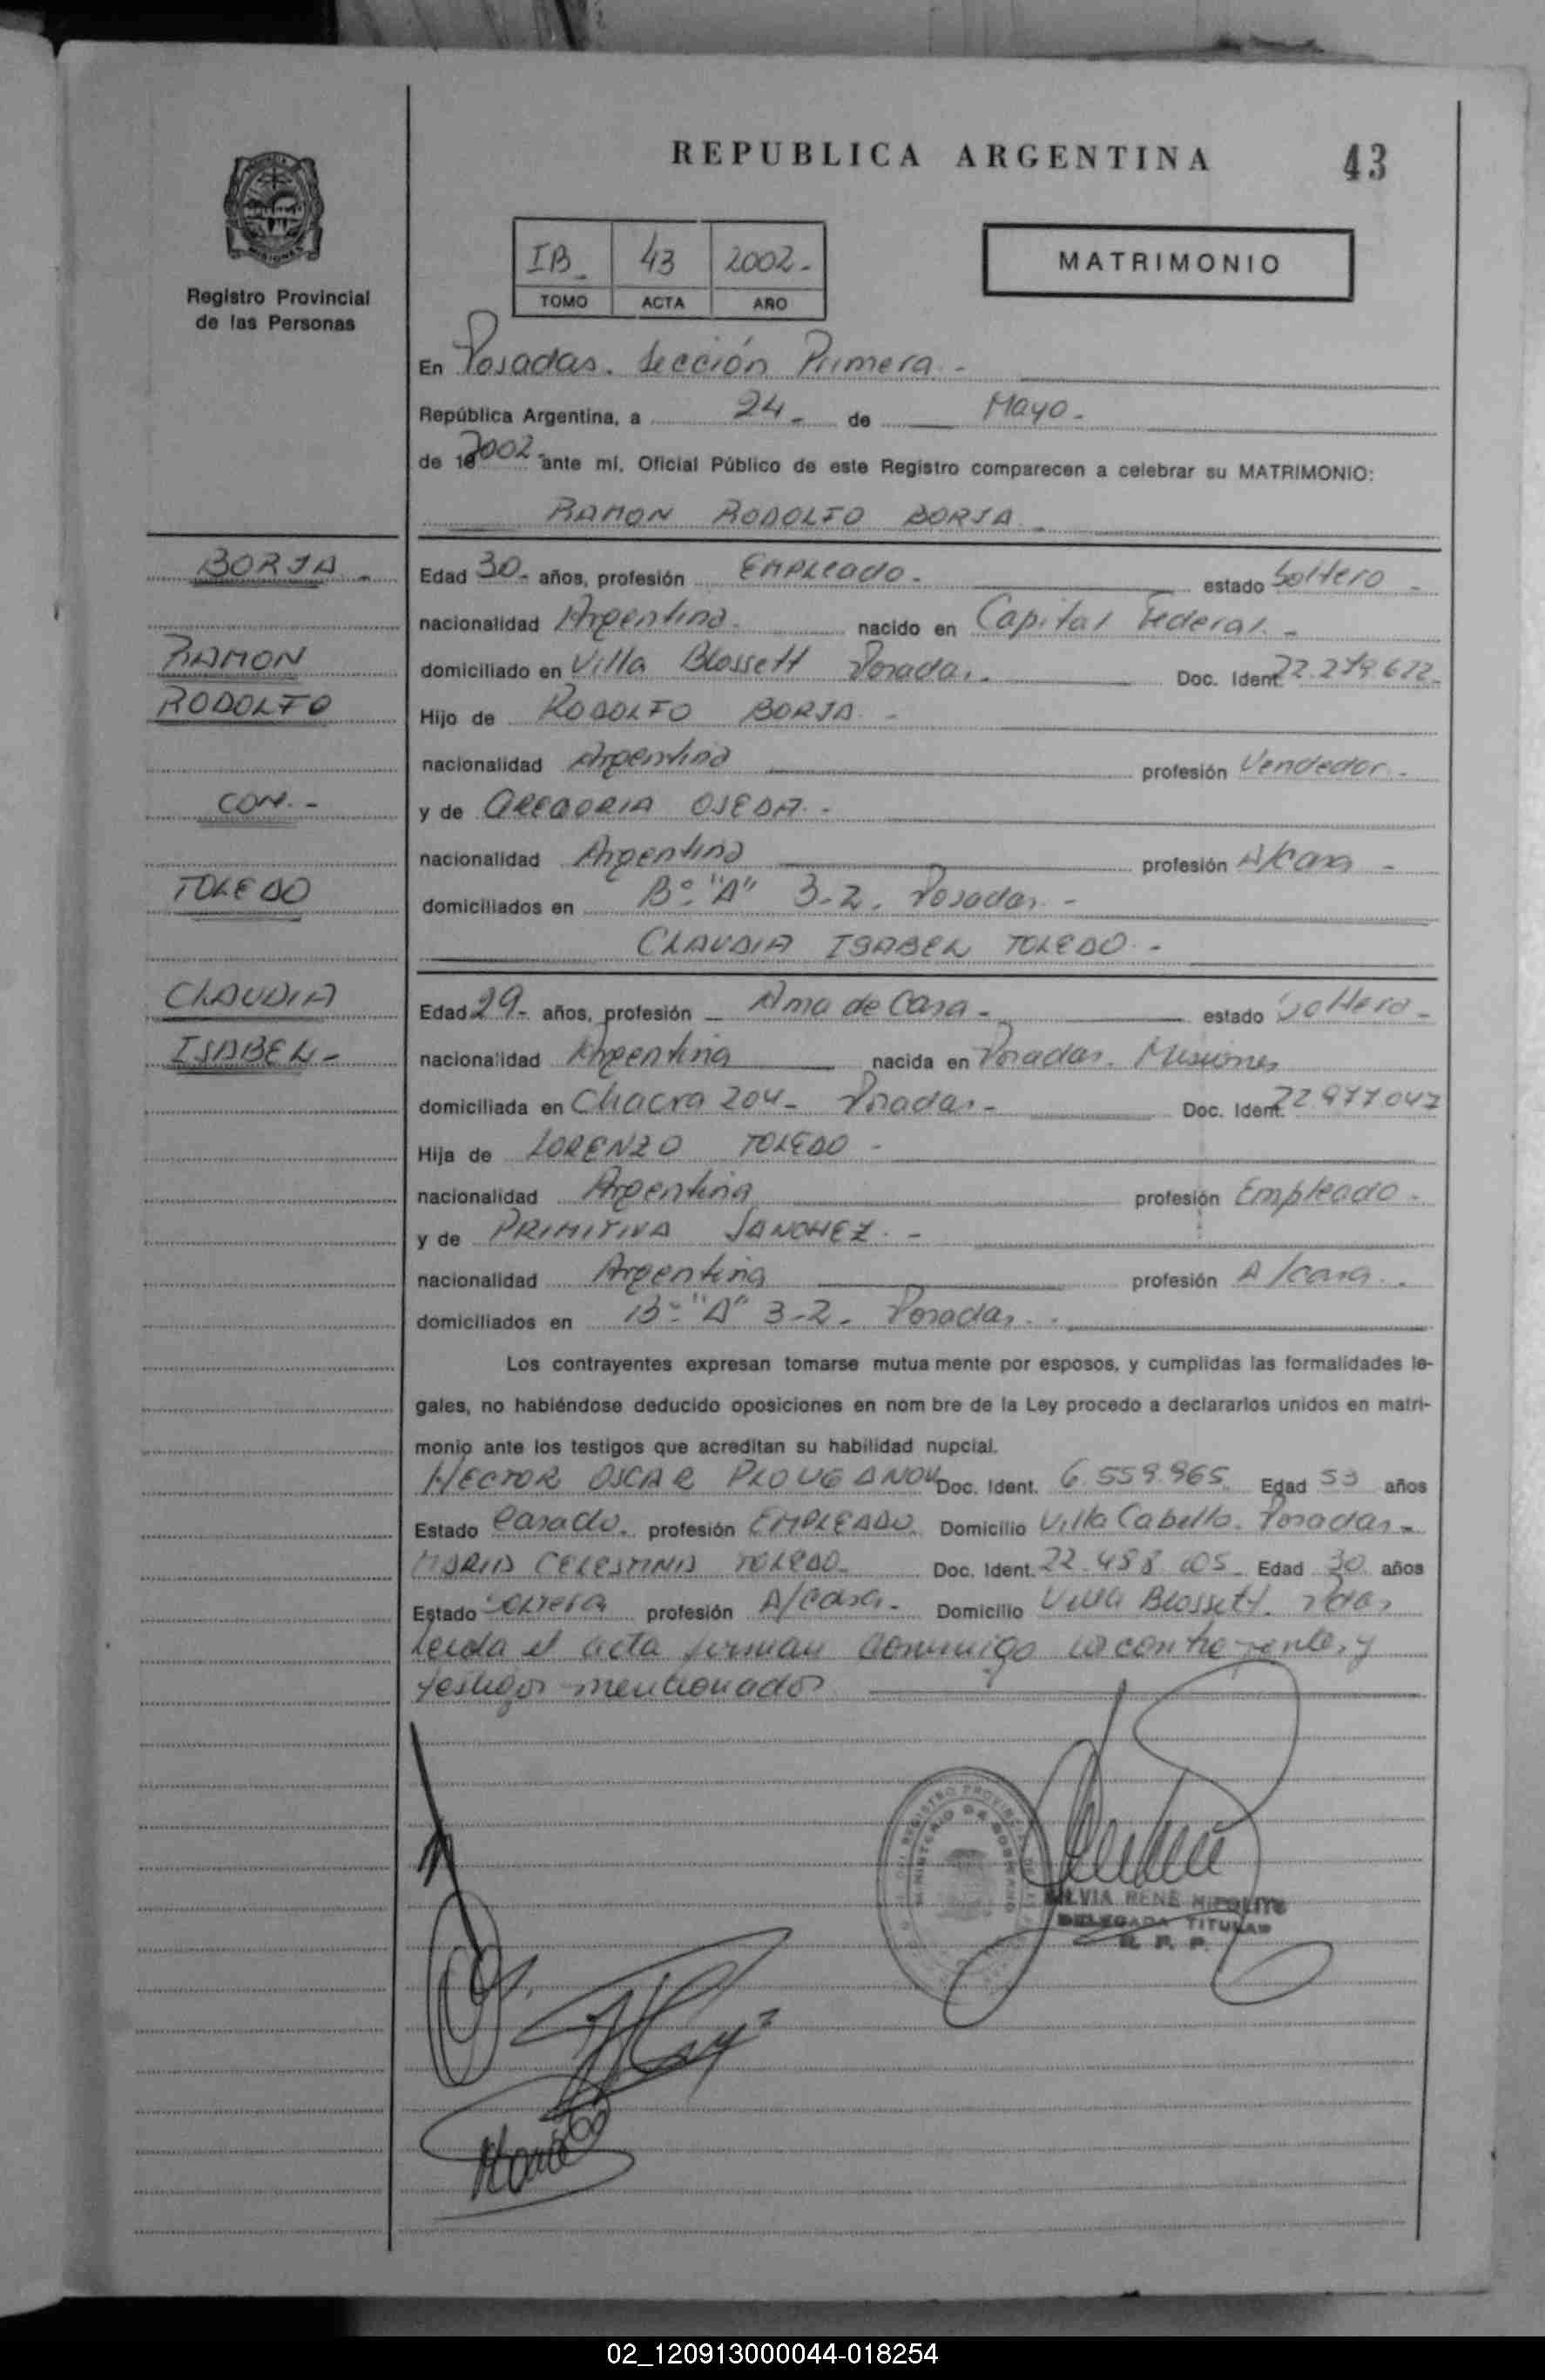 REPUBLICA ARGENTINA
43
IB 43 2002.-
TOMO ACTA AÑO
MATRIMONIO
Registro Provincial
de las Personas
En Posadas. Sección Primera.-
República Argentina, a 24- de Mayo-
de 2002- ante mí, Oficial Público de este Registro comparecen a celebrar su MATRIMONIO:
RAMON RODOLFO BORJA-
BORJA-
RAMON
RODOLFO
CON.-
TOLEDO
CLAUDIA
ISABEL-
Edad 30- años, profesión Empleado- estado Soltero-
nacionalidad Argentina- nacido en Capital Federal.-
domiciliado en Villa Blossett Posadas.- Doc. Ident. 22.279.622-
Hijo de RODOLFO BORJA-
nacionalidad Argentina profesión Vendedor-
y de GREGORIA OJEDA.-
nacionalidad Argentina profesión A/casa-
domiciliados en Bº "A" 3-2. Posadas-
CLAUDIA ISABEL TOLEDO.-
Edad 29- años, profesión Ama de Casa- estado Soltera-
nacionalidad Argentina nacida en Posadas. Misiones
domiciliada en Chacra 204- Posadas- Doc. Ident. 22.977.047
Hija de LORENZO TOLEDO-
nacionalidad Argentina profesión Empleado-
y de PRIMITIVA SANCHEZ.-
nacionalidad Argentina profesión A/casa.
domiciliados en Bº "A" 3-2- Posadas.
Los contrayentes expresan tomarse mutua mente por esposos, y cumplidas las formalidades le-
gales, no habiéndose deducido oposiciones en nom bre de la Ley procedo a declararlos unidos en matri-
monio ante los testigos que acreditan su habilidad nupcial.
HECTOR OSCAR Doc. Ident. 6.559.965 Edad 53 años
Estado Casado. profesión EMPLEADO Domicilio Villa Cabello. Posadas-
MARIA CELESTINA TOLEDO- Doc. Ident. 22.458.605 Edad 30 años
Estado Soltera profesión A/casa- Domicilio Villa Blossett. Pdas
Leida el acta firman conmigo los contrayentes y
testigos mencionados
SILVIA RENE HIPOLITO
DELEGADA TITULAR
R. P. P.
02_120913000044-018254